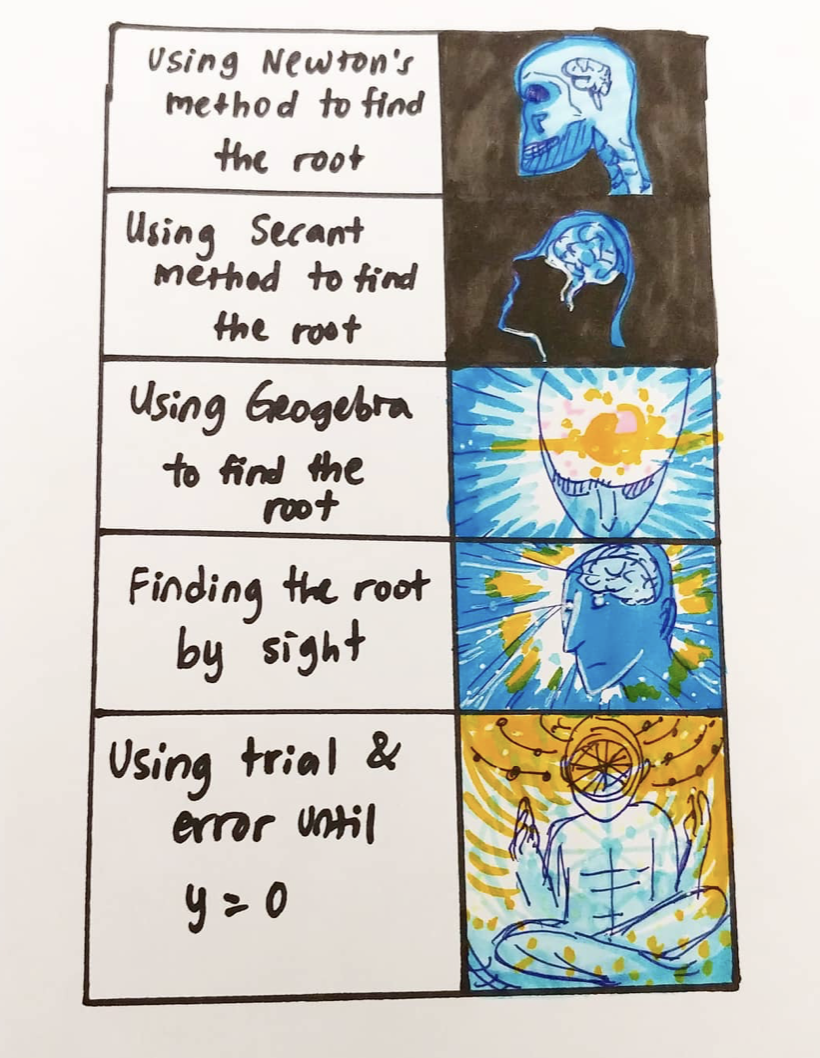 Using Newton's
method to find
the root
Using Secant
method to find
the root
Using Geogebra
to find the
root
Finding the root
by sight
Using trial &
error until
y = 0